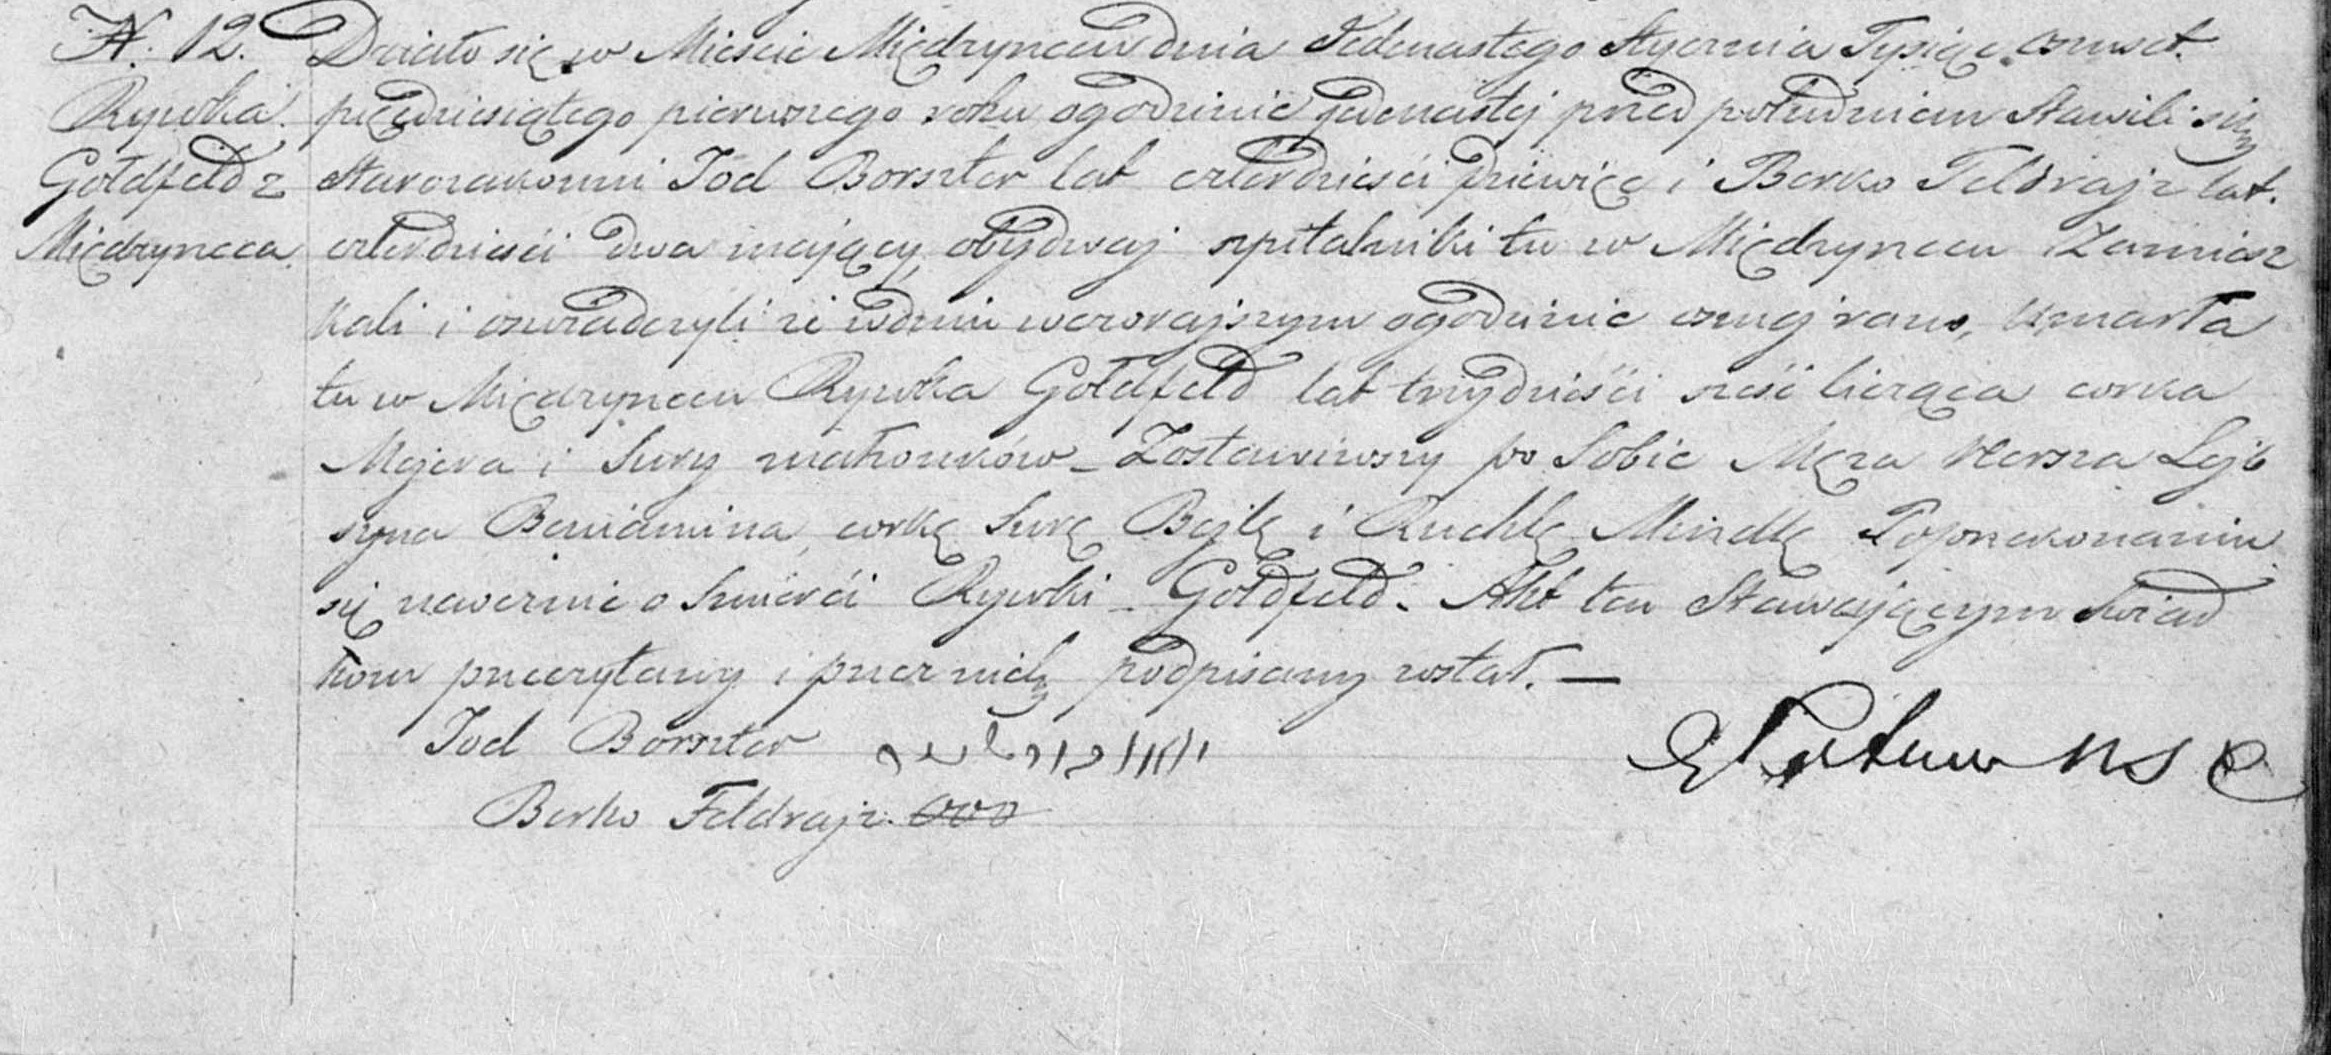 N. 12.
Rywka
Gołdfeld z
Międzyrzeca
Działo się w Mieście Międzyrzecu dnia Jedenastego Stycznia Tysiąc osmset
pięćdziesiątego pierwszego roku o godzinie jedenastej przed południem Stawili się
Starozakonni Joel Borszter lat czterdzieści dziewięć i Berko Feldrajz lat
czterdzieści dwa mający, obydwaj szpitalniki tu w Międzyrzecu Zamiesz
kali i oswiadczyli że w dniu wczorajszym o godzinie osmej rano, Umarła
tu w Międzyrzecu Rywka Gołdfeld lat trzydzieści sześć licząca corka
Mejera i Sury małżonków – Zostawiwszy po Sobie Męża Hersza Lejb
syna Beniamina, corkę Surę Bejlę i Ruchlę Mindlę Po przekonaniu
się naocznie o Smierći Rywki – Gołdfeld. Akt ten Stawającym Swiad
kom przeczytany i przez nich podpisany został. —
Joel Borszter
Berko Feldrajz